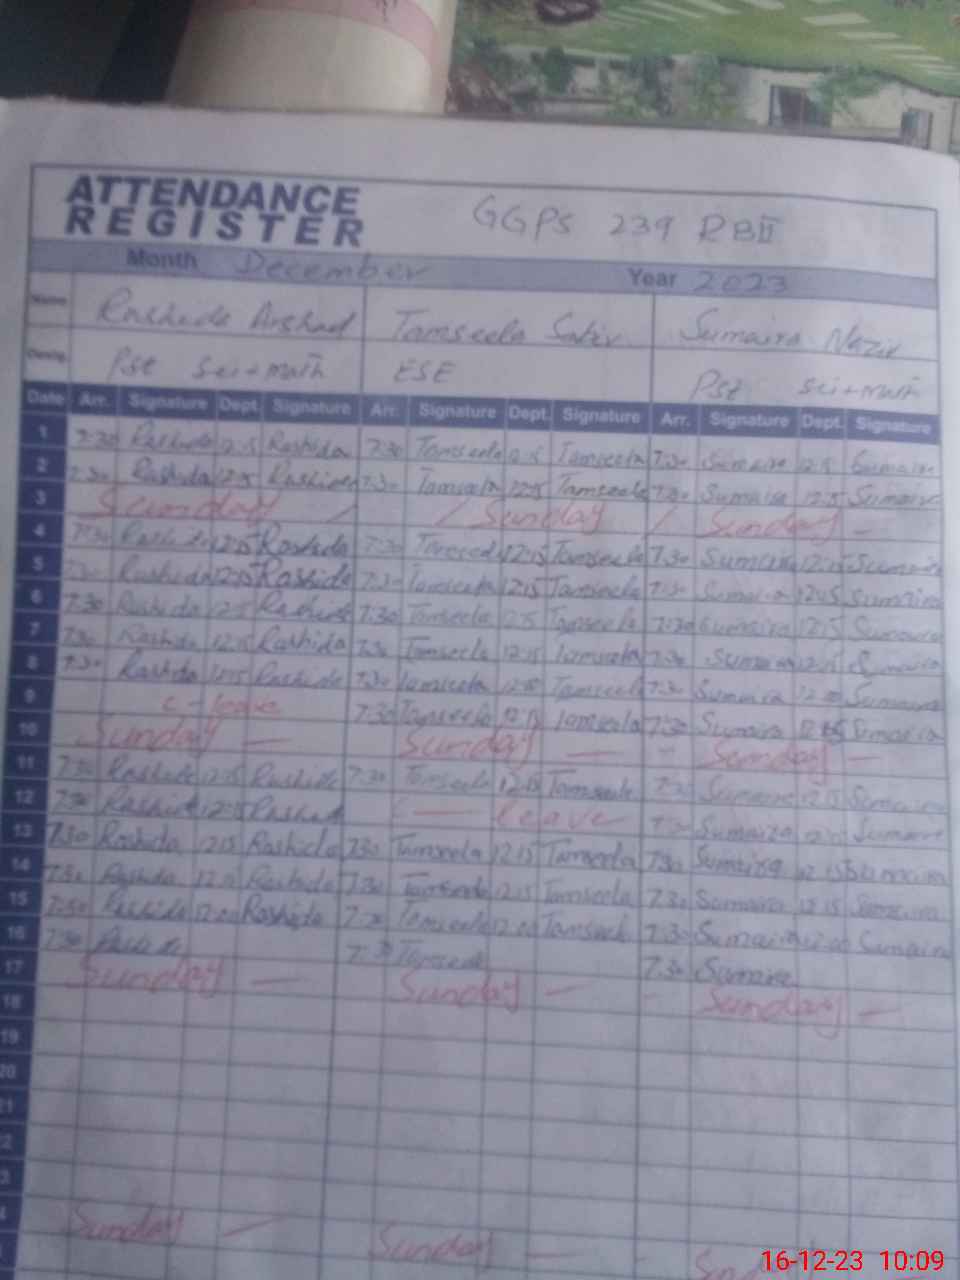 ATTENDANCE
REGISTER
GGPS 239 RB II
Month December Year 2023
Name Rashida Arshad Tamseela Sabir Sumaira Nazir
Desig. Pst sci+math ESE Pst sci+math
Date Arr. Signature Dept. Signature Arr. Signature Dept. Signature Arr. Signature Dept. Signature
1 7:30 Rashida 12:15 Rashida 7:30 Tamseela 12:15 Tamseela 7:30 Sumaira 12:15 Sumaira
2 7:30 Rashida 12:15 Rashida 7:30 Tamseela 12:15 Tamseela 7:30 Sumaira 12:15 Sumaira
3 Sunday / / Sunday / Sunday -
4 7:30 Rashida 12:15 Rashida 7:30 Tamseela 12:15 Tamseela 7:30 Sumaira 12:15 Sumaira
5 7:30 Rashida 12:15 Rashida 7:30 Tamseela 12:15 Tamseela 7:30 Sumaira 12:15 Sumaira
6 7:30 Rashida 12:15 Rashida 7:30 Tamseela 12:15 Tamseela 7:30 Sumaira 12:15 Sumaira
7 7:30 Rashida 12:15 Rashida 7:30 Tamseela 12:15 Tamseela 7:30 Sumaira 12:15 Sumaira
8 7:30 Rashida 12:15 Rashida 7:30 Tamseela 12:15 Tamseela 7:30 Sumaira Sumaira
9 c-leave 7:30 Tamseela 12:15 Tamseela 7:30 Sumaira Sumaira
10 Sunday — Sunday — - Sunday —
11 7:30 Rashida 12:15 Rashida 7:30 Tamseela 12:15 Tamseela 7:30 Sumaira 12:15 Sumaira
12 7:30 Rashida 12:15 Rashida leave 7:30 Sumaira Sumaira
13 7:30 Rashida 12:15 Rashida 7:30 Tamseela 12:15 Tamseela 7:30 Sumaira 12:15 Sumaira
14 7:30 Rashida 12:15 Rashida 7:30 Tamseela 12:15 Tamseela 7:30 Sumaira 12:15 Sumaira
15 7:30 Rashida 12:00 Rashida 7:30 Tamseela 12:00 Tamseela 7:30 Sumaira 12:00 Sumaira
16 7:30 Rashida 7:30 Tamseela 7:30 Sumaira
17 Sunday — Sunday — - Sunday —
18
19
20
21
Sunday — Sunday — -
16-12-23 10:09